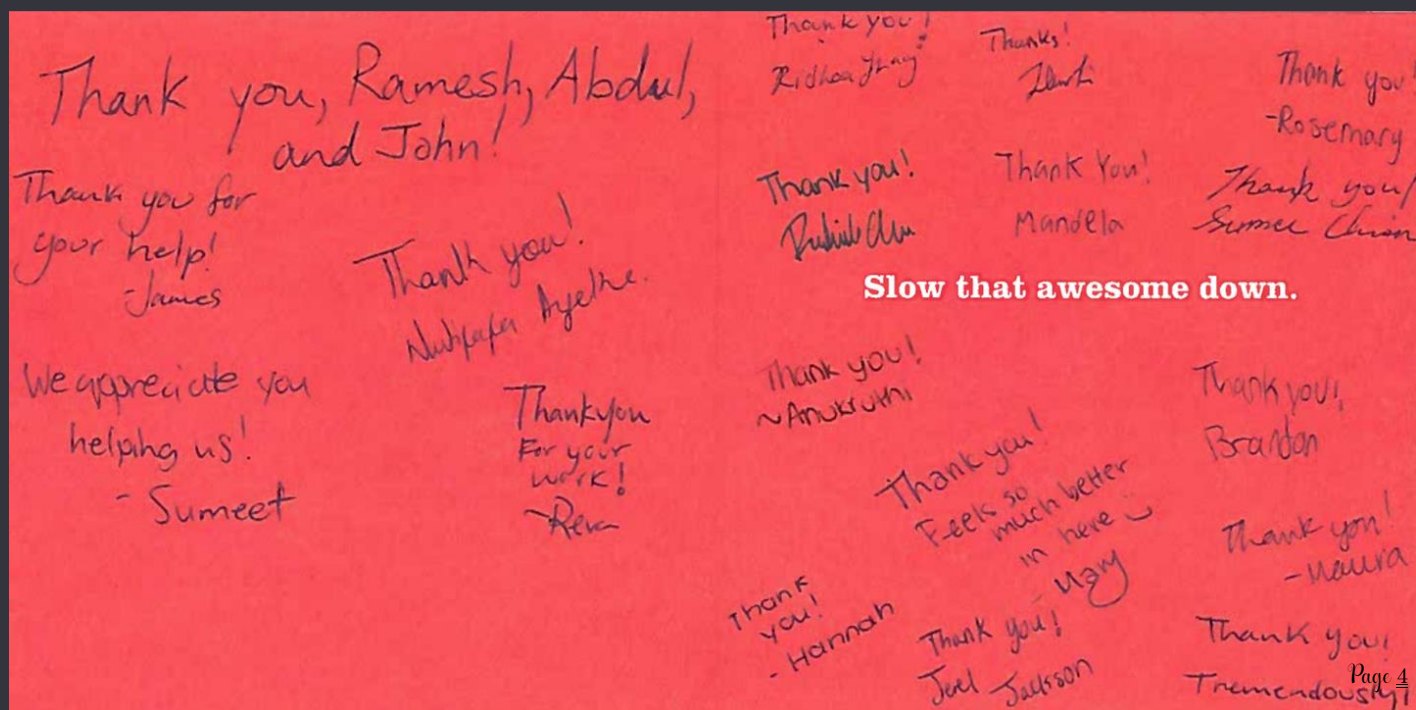 Thank you, Ramesh, Abdul,
and John!
Thank you for
your help!
-James
Thank you!
We appreciate you
helping us!
- Sumeet
Thankyou
For your
work!
~Reva
Thank you!
Thanks!
Thank you!
-Rosemary
Thank you!
Thank You!
Mandela
Thank you!
Slow that awesome down.
Thank you!
~Anukruthi
Thank you!
Brandon
Thank you!
Feels so
much better
in here
- Mary
Thank you!
-Maura
Thank
you!
- Hannah
Thank you!
Jackson
Thank you!
Tremendously!
Page 4